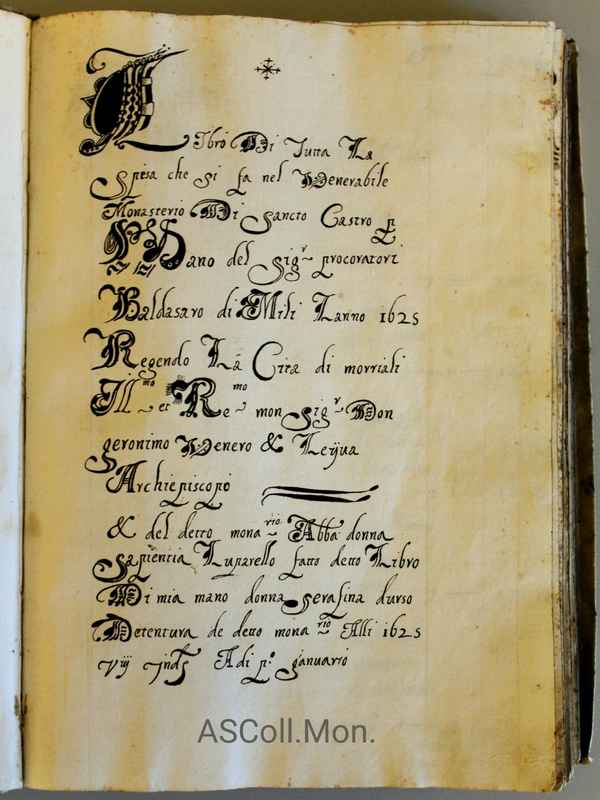 Libro Di Tutta La
Spesa che si fa nel Venerabile
Monasterio Di Sancto Castro p
Mano del Sigr procoratori
Baldasaro di Mili Lanno 1625
Regendo La Cita di morriali
Illmo et Remo mon sigr Don
geronimo Venero & Leÿua
Archiepiscopo
& del detto monario Abba donna
Sapientia Luparello fatto detto Libro
Di mia mano donna serafina durso
Detentura de detto monario Alli 1625
viij Ind Adi po gianuario
ASColl.Mon.